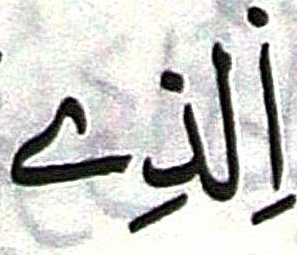 اِ۬لذِے